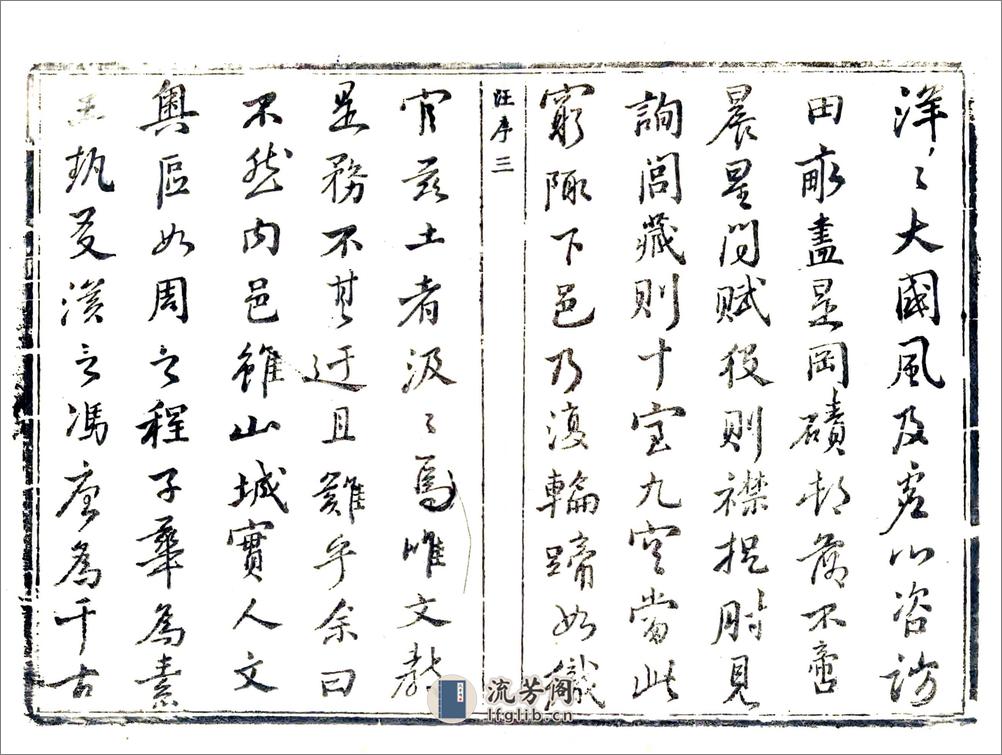 洋〻大國風及虛心咨訪
田畝盡是岡磧村落不啻
晨星問賦役則襟捉肘見
詢閭藏則十室九空當此
窮陬下邑乃復輪蹄如織
汪序 三
官茲土者汲〻焉惟文教
是務不其迂且難乎余曰
不然內邑雖山城實人文
奧區如周之程子華為素
王執友漢之馮唐為千古
流芳阁
lfglib.cn